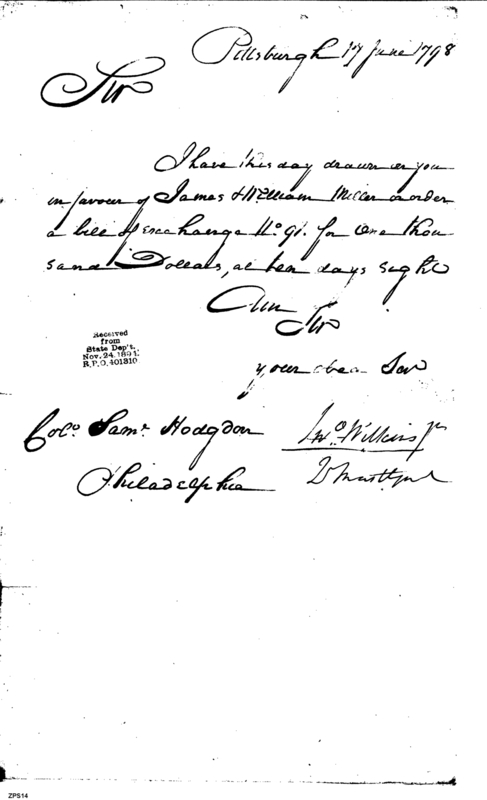 Pittsburgh 17 June 1798
Sir
I have this day drawn on you
in favour of James & William Miller or order
a bill of exchange No. 91. for One thou
sand Dollars, at ten days sight
I am Sir
your obed Ser
Jno Wilkins Jr
Q Mast Genl
Colo. Saml. Hodgdon
Philadelphia
Received
from
State Dep't.
Nov. 24, 1894.
R.P.O. 401310
ZPS14